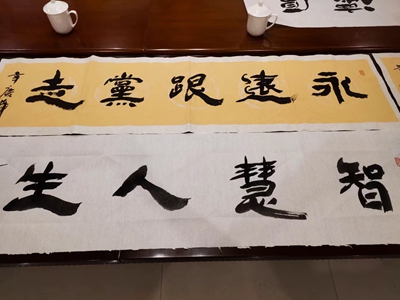 永遠跟黨走
智慧人生